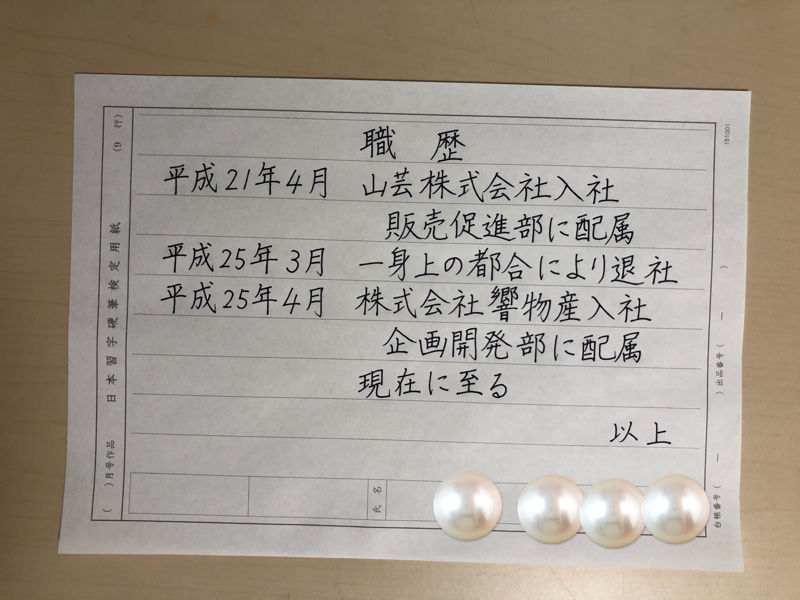 職歴
平成21年4月 山芸株式会社入社
販売促進部に配属
平成25年3月 一身上の都合により退社
平成25年4月 株式会社響物産入社
企画開発部に配属
現在に至る
以上
氏名
( )月号作品 日本習字硬筆検定用紙 (9行)
151001
台帳番号( ー ) 出品番号( ー )